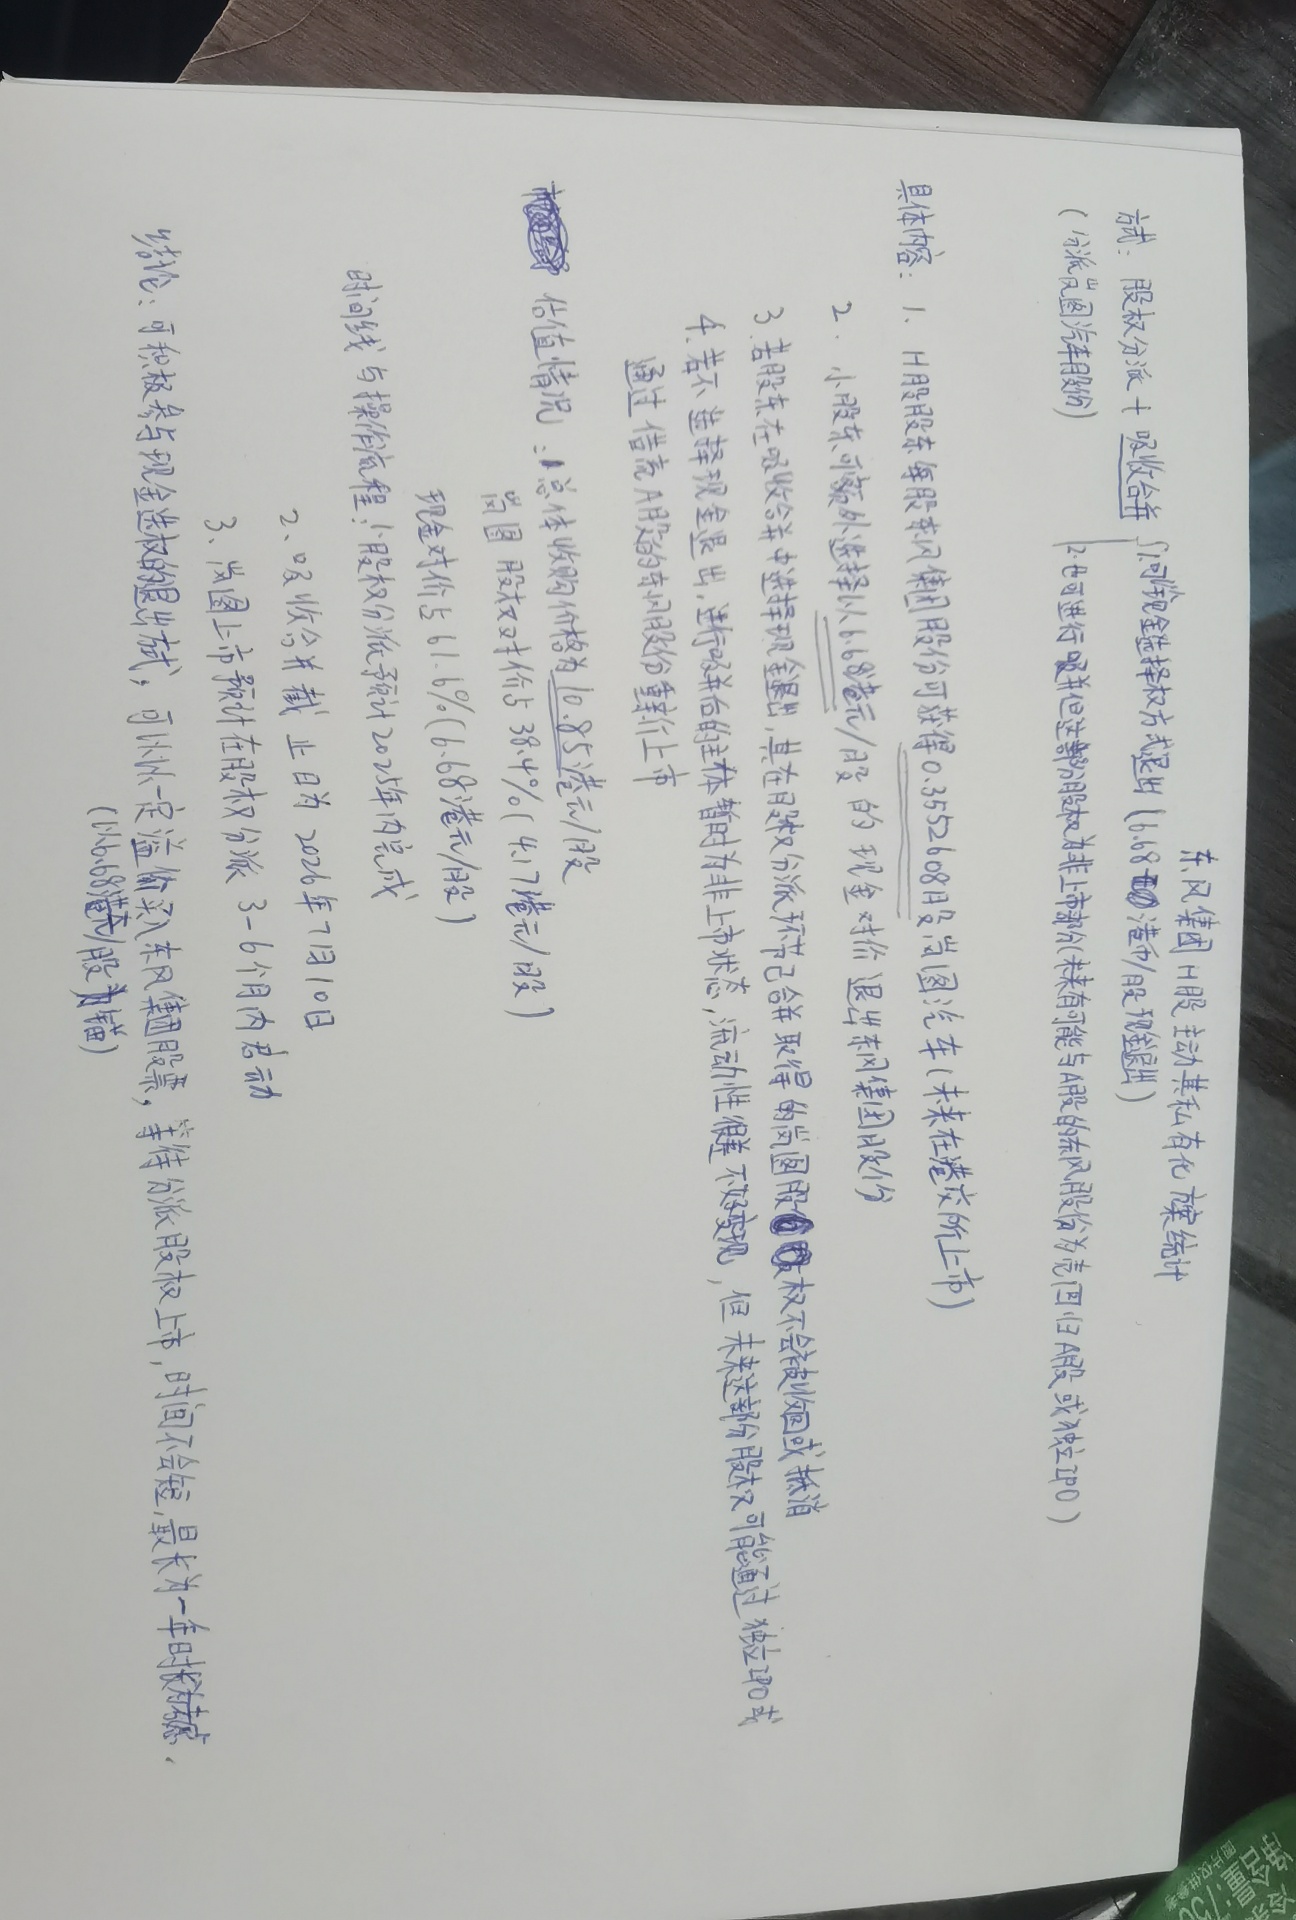 东风集团H股主动其私有化方案统计
方式: 股权分派 + 吸收合并 { 1.可以给现金选择权方式退出 (6.68 港币/股 现金退出)
(分派岚图汽车股份)
2.也可进行吸并但这部分股权为非上市部分(未来有可能与A股的东风股份为壳回归A股或独立IPO)
具体内容: 1、H股股东每股东风集团股份可获得0.3552608股岚图汽车(未来在港交所上市)
2. 小股东可额外选择以6.68港元/股的现金对价退出东风集团股份
3.若股东在吸收合并中选择现金退出,其在股权分派环节已合并取得的岚图股权不会被收回或抵消
4.若不选择现金退出,进行吸并后的主体暂时为非上市状态,流动性很差不好变现,但未来这部分股权可能通过独立IPO或
通过借壳A股的东风股份重新上市
估值情况: 1.总体收购价格为10.85港元/股
岚图股权对价占38.4%(4.17港元/股)
现金对价占61.6%(6.68港元/股)
时间线与操作流程: 1.股权分派预计2025年内完成
2、吸收合并截止日为2026年7月10日
3、岚图上市预计在股权分派3-6个月内启动
结论: 可积极参与现金选权的退出方式,可以以一定溢价买入东风集团股票,等待分派股权上市,时间不会短,最长为一年时间为考虑.
(以6.68港元/股为锚)
冷
含量:
图片仅供参考